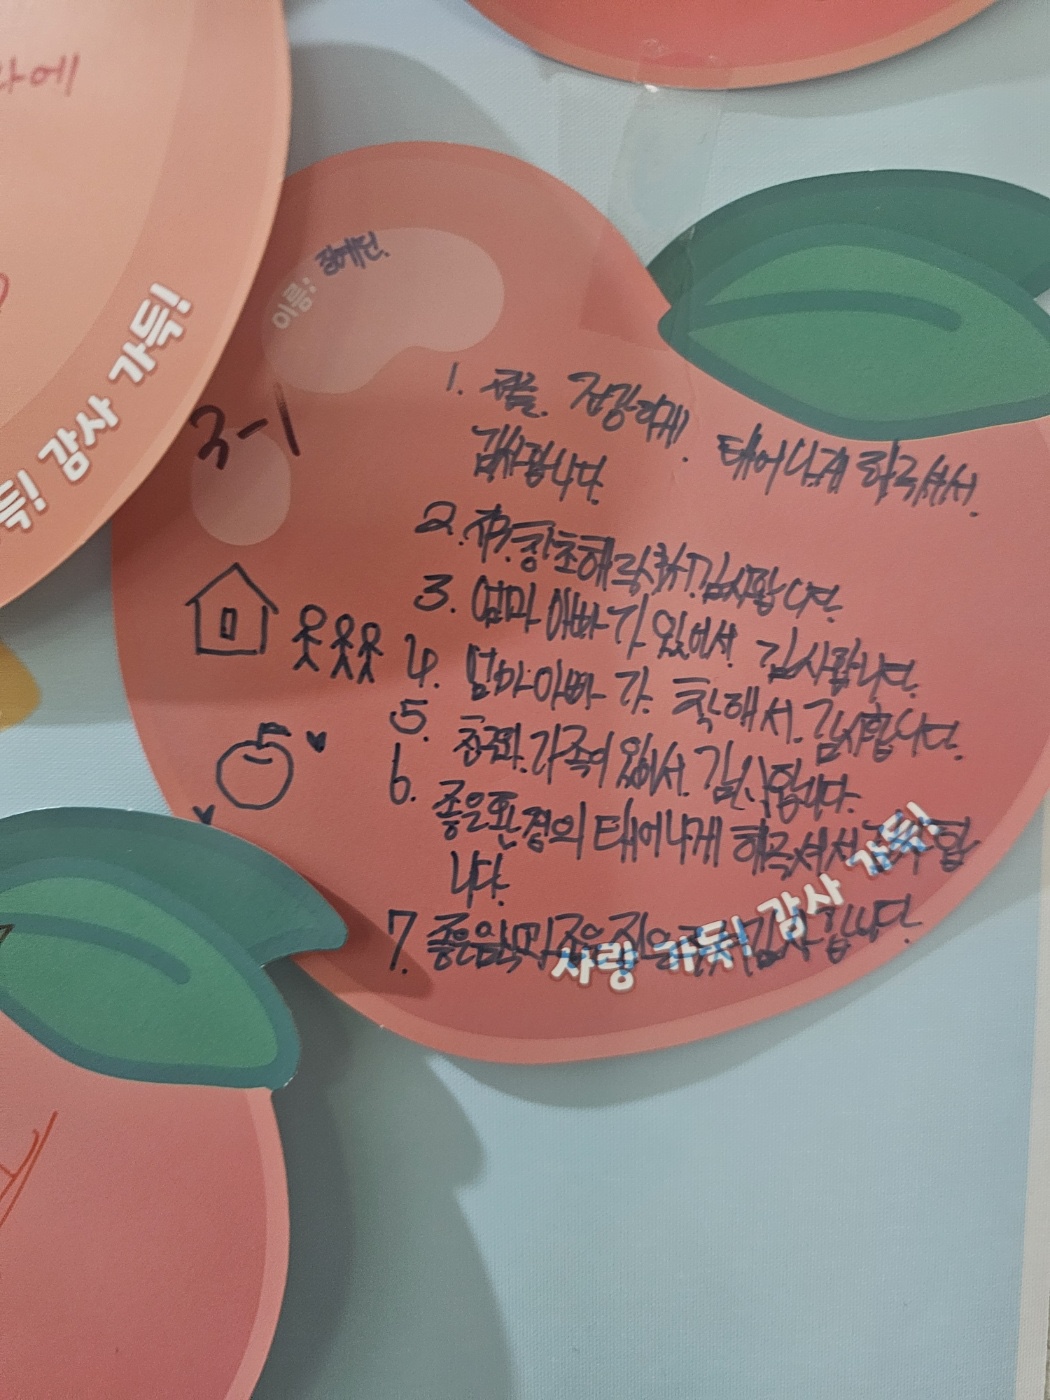 라에
득! 감사 가득!
이름:
3-1
1. 저를 건강하게 태어나게 해주셔서
감사합니다.
2. 감사합니다.
3. 엄마 아빠가 있어서 감사합니다.
4. 엄마 아빠가 착해서 감사합니다.
5. 가족이 있어서 감사합니다.
6. 좋은 환경의 태어나게 해주셔서 감사합
니다.
7. 좋은 음식과 좋은 집을 감사합니다.
사랑 가득! 감사 가득!